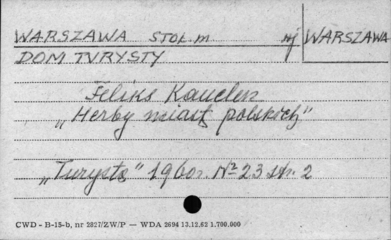 WARSZAWA STOŁ. m. WARSZAWA
DOM TURYSTY
Feliks
„Herby miast polskich"
„Turysta" 1960 r. № 23 str. 2
CWD - B-15-b, nr 2827/ZW/P — WDA 2694 13.12.62 1.700.000